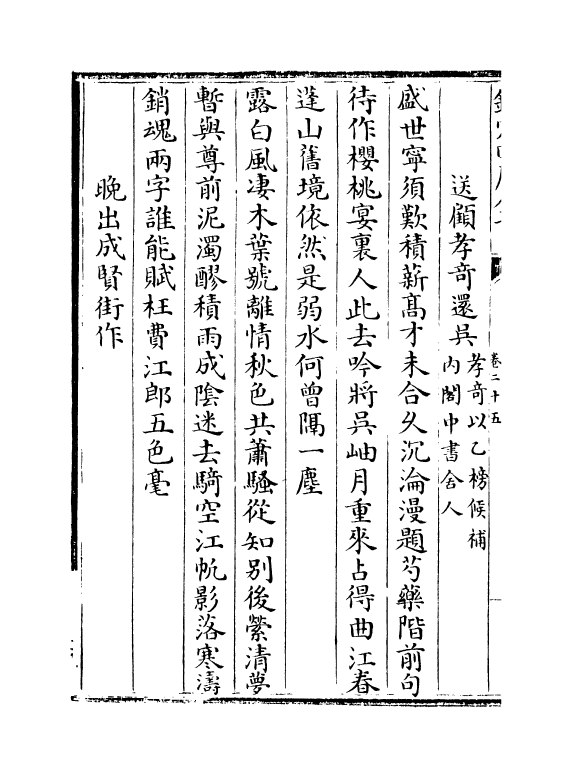 卷二十五
送顧孝竒還吳孝竒以乙榜候補
内閣中書舍人
盛世寧須歎積薪高才未合久沉淪漫題芍藥階前句
待作櫻桃宴裏人此去吟將吳岫月重來占得曲江春
蓬山舊境依然是弱水何曾隔一塵
露白風凄木葉號離情秋色共蕭騷從知别後縈清夢
暫與尊前泥濁醪積雨成陰迷去騎空江帆影落寒濤
銷魂兩字誰能賦枉費江郎五色毫
晚出成賢街作